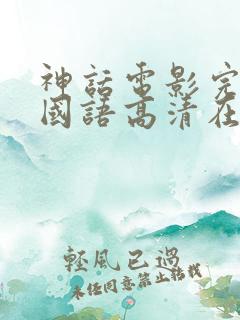 神話電影完
國語高清在
輕風已過
未经同意禁止转载